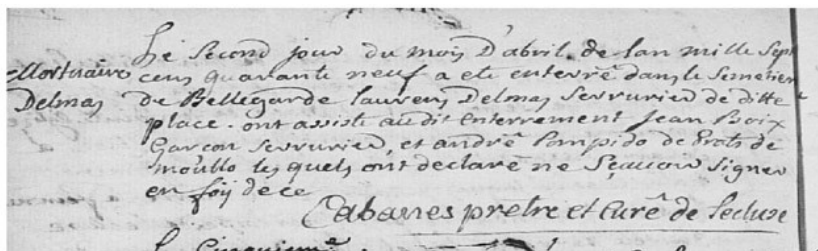 Le Second jour du mois D'abril de lan mille Sept
Mortuaire cens quarante neuf a ete enterré dans le Semetiere
Delmas de Bellegarde laurens Delmas Serrurier de ditte
place. ont assiste audit Enterrement Jean Boix
Garcon Serrurier, et andré Pompido de Prats de
moullo les quels ont declaré ne Sçauoir Signer
en foÿ de ce
Cabanes pretre et Curé de lecluse